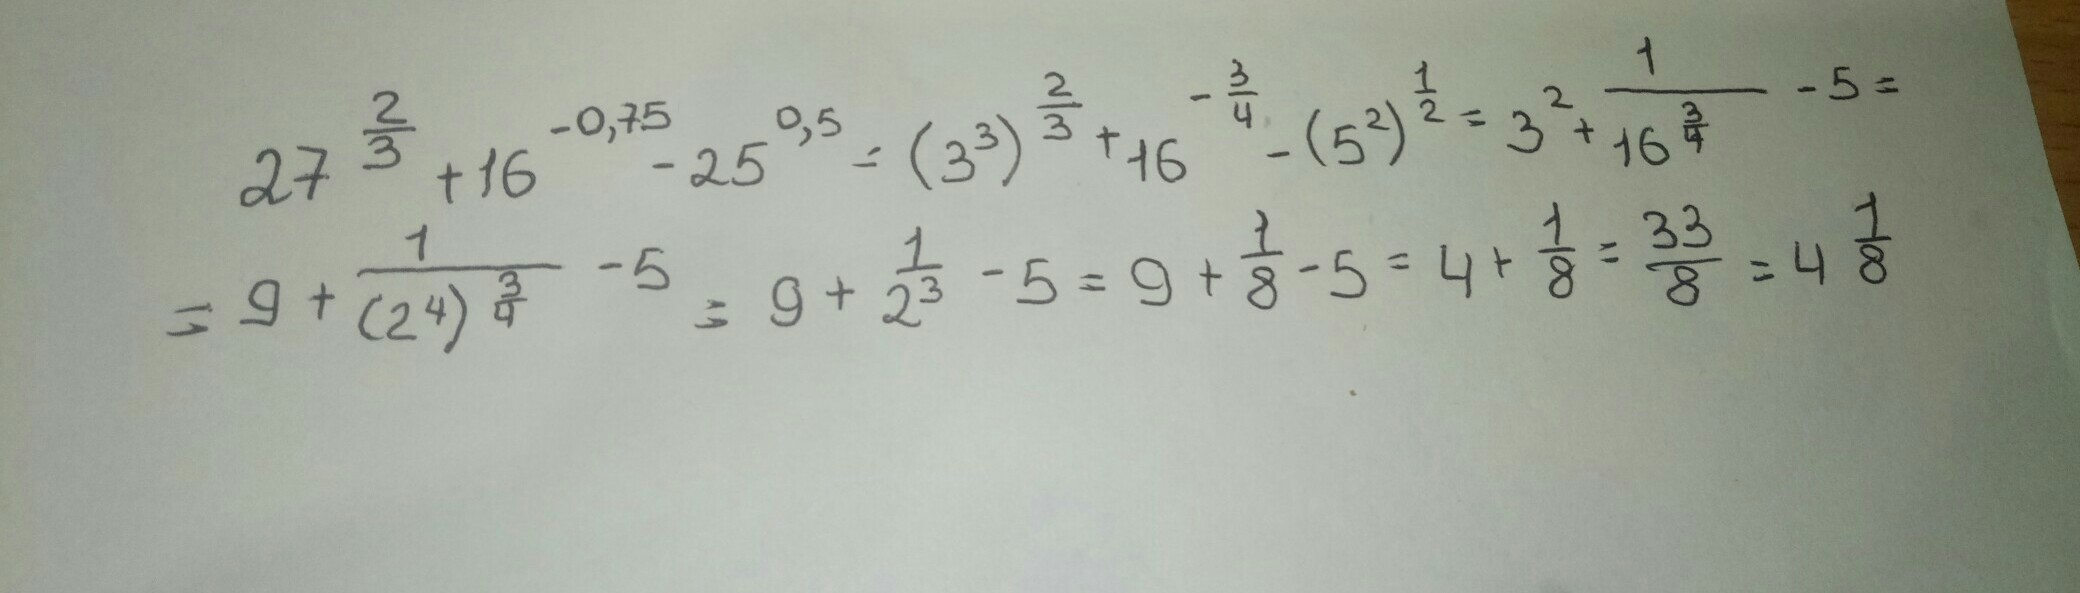 27^(2/3) + 16^(-0,75) - 25^(0,5) = (3^3)^(2/3) + 16^(-3/4) - (5^2)^(1/2) = 3^2 + 1/16^(3/4) - 5 =
= 9 + 1/(2^4)^(3/4) - 5 = 9 + 1/2^3 - 5 = 9 + 1/8 - 5 = 4 + 1/8 = 33/8 = 4 1/8